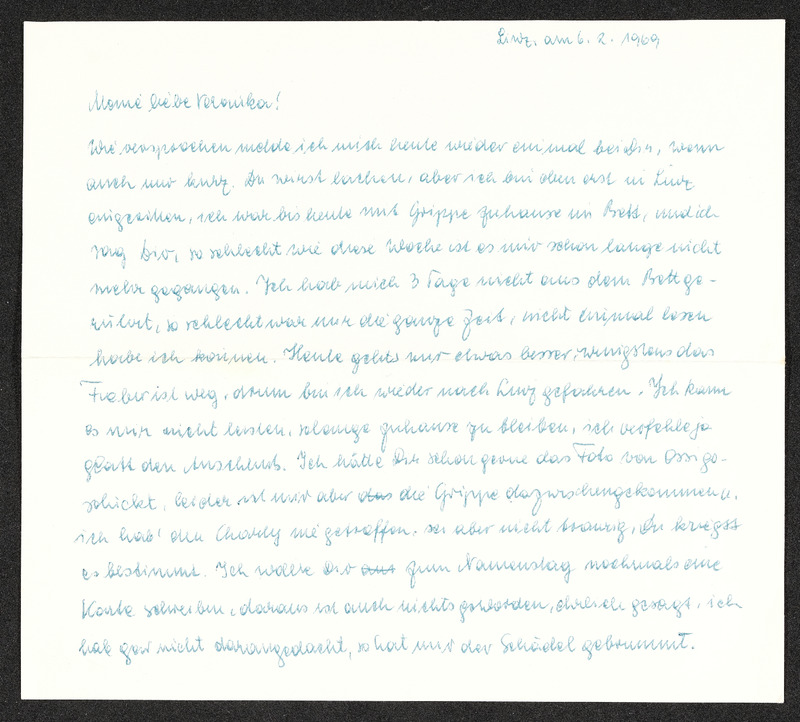 Linz, am 6. 2. 1969
Meine liebe Veronika!
Wie versprochen melde ich mich heute wieder einmal bei Dir, wenn
auch nur kurz. Du wirst lachen, aber ich bin eben erst in Linz
eingezogen, ich war bis heute mit Grippe zuhause im Bett, und ich
sag Dir, so schlecht wie diese Woche ist es mir schon lange nicht
mehr gegangen. Ich hab mich 3 Tage nicht aus dem Bett ge-
rührt, so schlecht war mir die ganze Zeit, nicht einmal lesen
habe ich können. Heute gehts mir etwas besser, wenigstens das
Fieber ist weg, drum bin ich wieder nach Linz gefahren. Ich kann
es mir nicht leisten, solange zuhause zu bleiben, ich verfehle ja
glatt den Anschluß. Ich hätte Dir schon gerne das Foto von Ossi ge-
schickt, leider ist mir aber das die Grippe dazwischengekommen u.
ich hab' den Charly nie getroffen. Sei aber nicht traurig, Du kriegst
es bestimmt. Ich wollte Dir aus zum Namenstag nochmals eine
Karte schreiben, daraus ist auch nichts geworden, ehrlich gesagt, ich
hab gar nicht darangedacht, so hat mir der Schädel gebrummt.